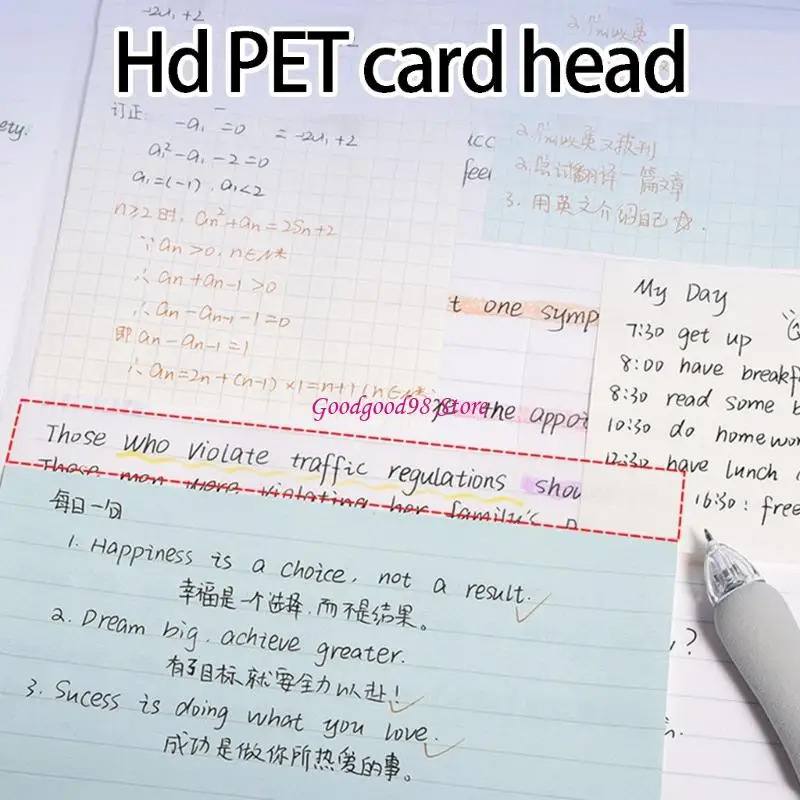 Hd PET card head
-2a₁+2
订正:
-a₁=0 = -2a₁+2
a₁²-a₁-2=0
a₁=(-1), a₁<2
n≥2时, an²+an=2Sn+2
∵an>0, n∈N*
∴an+an-1>0
∴an-an-1-1=0
即an-an-1=1
∴an=2n+(n-1)×1=n+1(n∈N*)
ety.
ucc
feel
2.尝试翻译一篇文章
3.用英文介绍自己
t one symp
the appoi
Goodgood987Store
My Day
7:30 get up
8:00 have breakf
8:30 read some b
10:30 do homewor
12:30 have lunch
16:30: free
Those who violate traffic regulations shou
Those men were violating her family's
每日一句
1. Happiness is a choice, not a result.
幸福是一个选择,而不是结果。
2. Dream big, achieve greater.
有了目标就要全力以赴!
3. Sucess is doing what you love.
成功是做你所热爱的事。